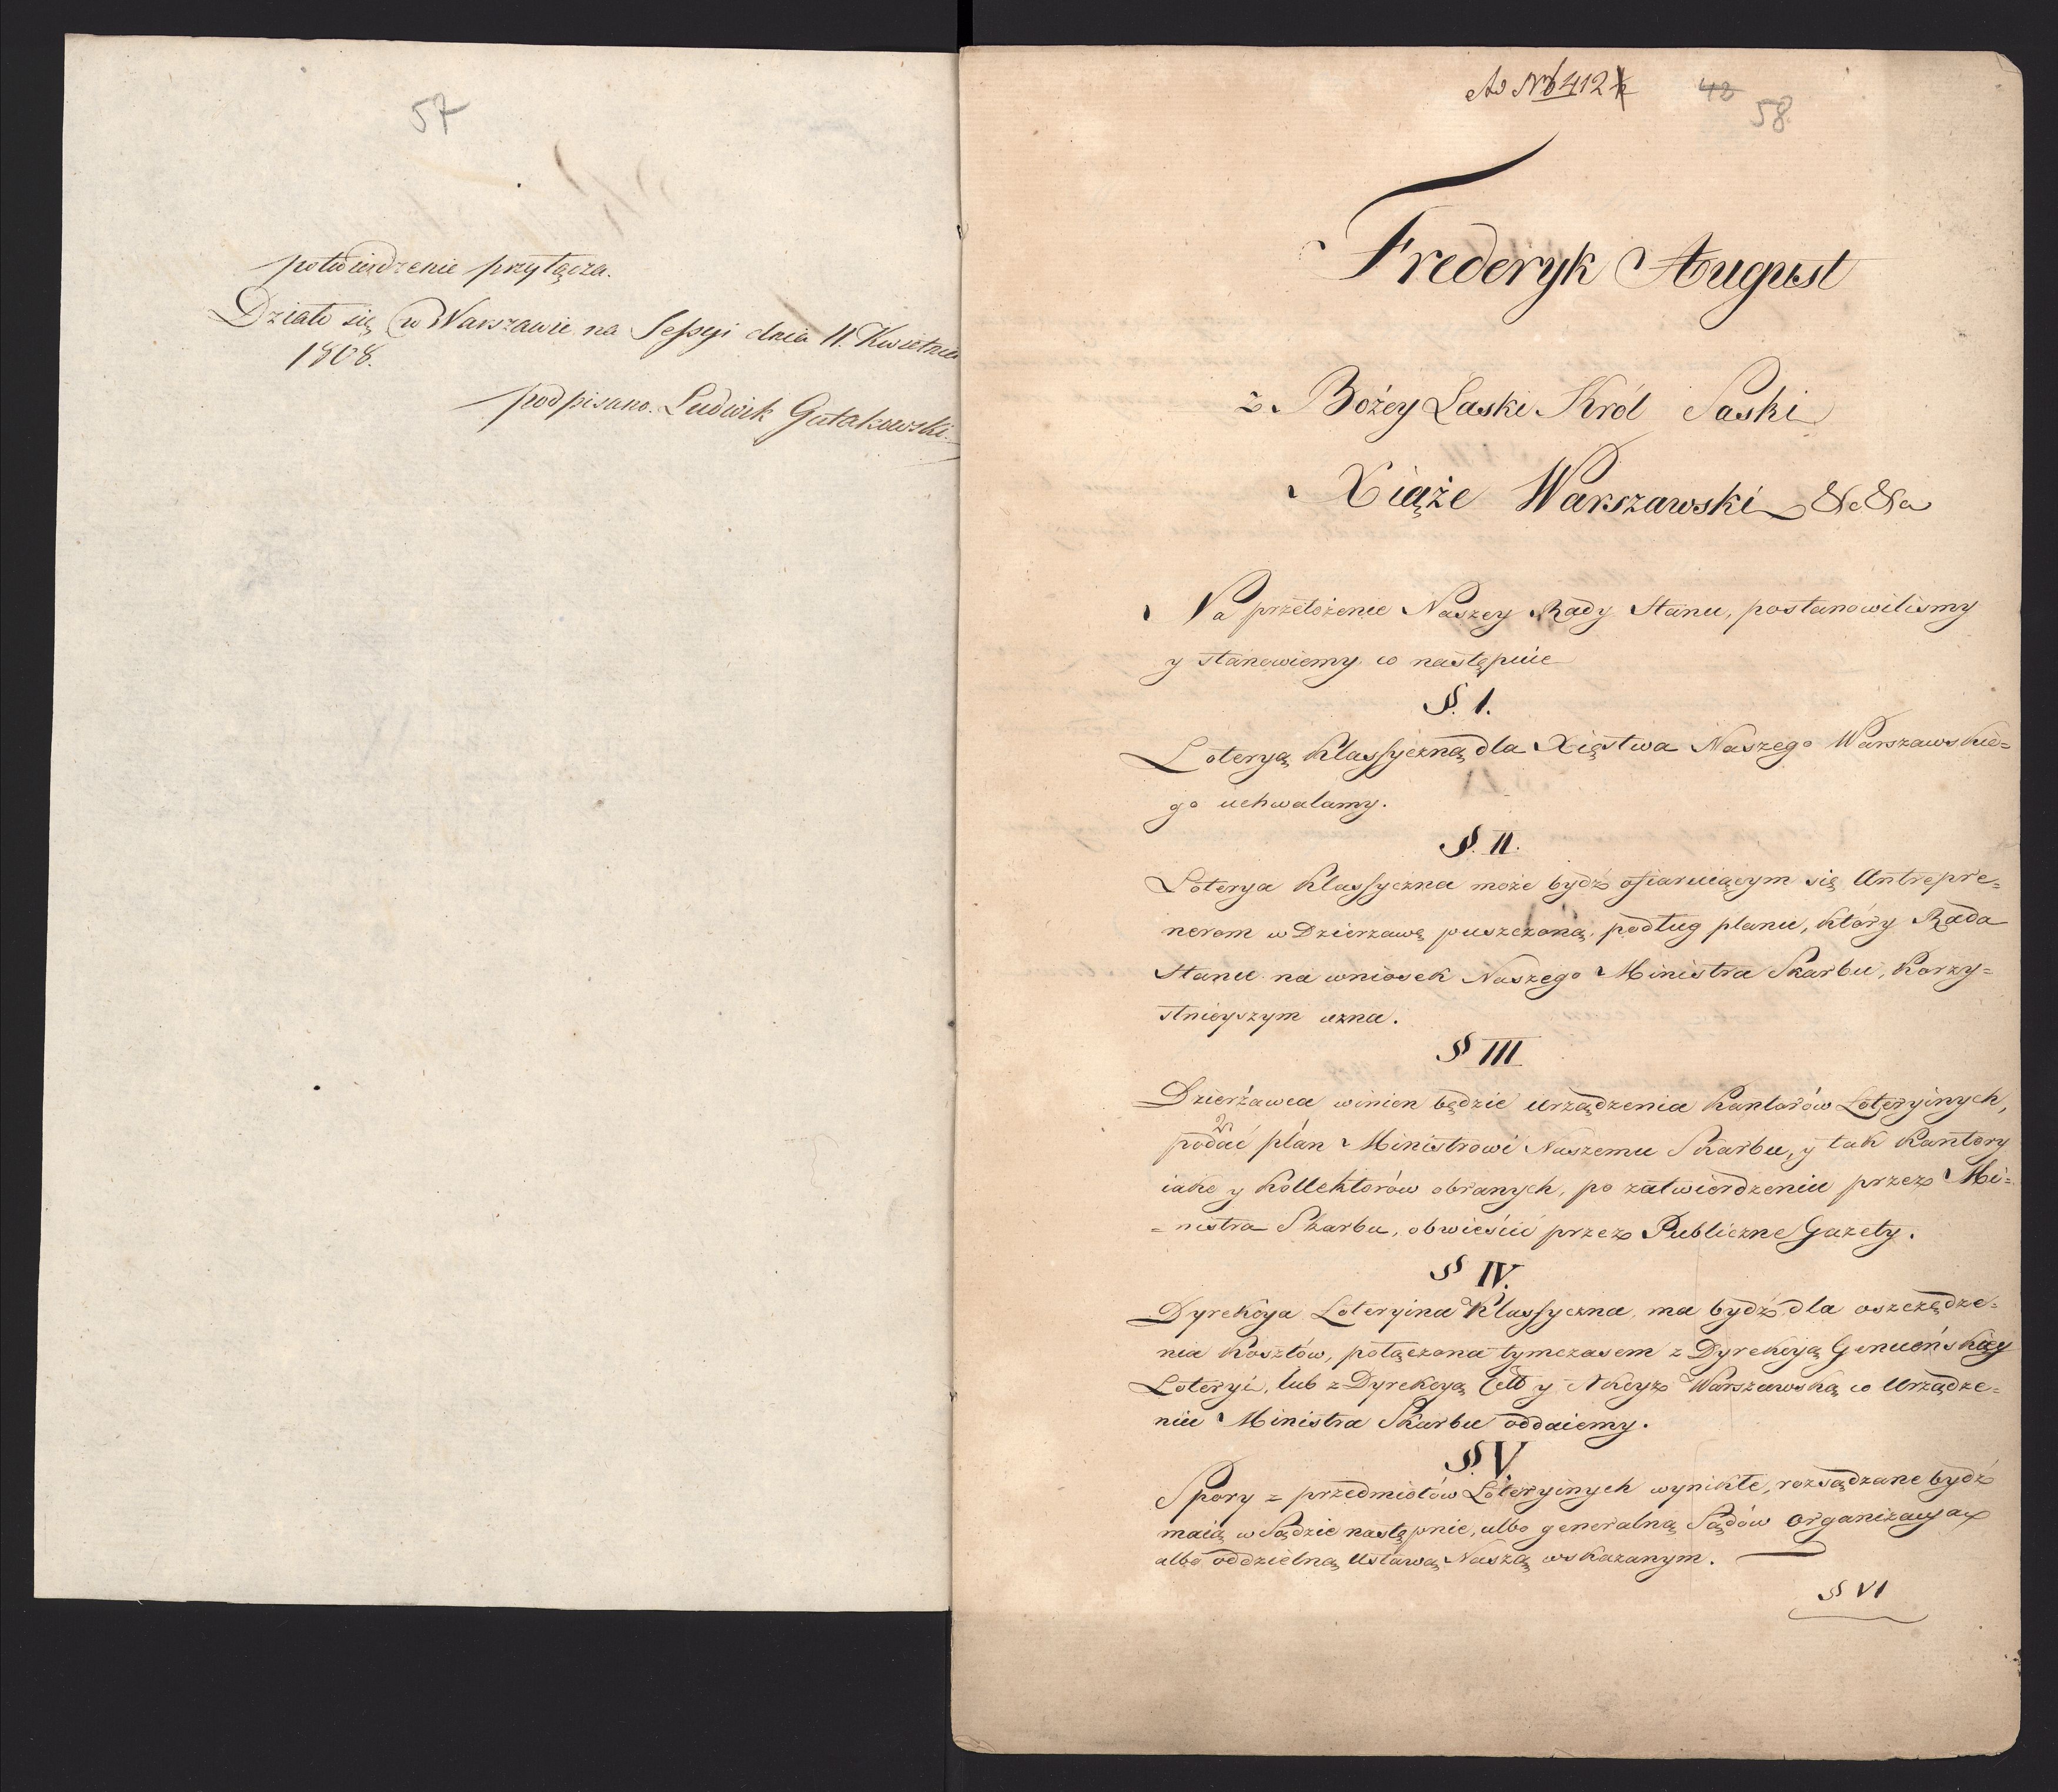 57
potwierdzenie przyłącza.
Działo się w Warszawie na Sessyi dnia 11. Kwietnia
1808.
podpisano. Ludwik Gutakowski.
Ad No 412
42
58
Frederyk August
z Bożey Łaski Król Saski
Xiąże Warszawski &c &c
Na przełożenie Naszey Rady Stanu, postanowilismy
y stanowiemy co następuie
§. I.
Loteryą Klassyczną dla Xięstwa Naszego Warszawskie=
go uchwalamy.
§. II.
Loterya Klassyczna może bydź ofiaruiącym się Antrepre=
nerom w Dzierzawę puszczoną, podług planu, który Rada
Stanu na wniosek Naszego Ministra Skarbu, Korzy=
stnieyszym uzna.
§ III
Dzierżawca winien będzie urządzenia Kantorów Loteryinych,
podać plan Ministrowi Naszemu Skarbu, y tak Kantory
iako y Kollektorów obranych, po zatwierdzeniu przez Mi=
=nistra Skarbu, obwieścić przez Publiczne Gazety.
§ IV.
Dyrekcya Loteryina Klassyczna, ma bydź dla oszczędze=
nia Kosztów, połączona tymczasem z Dyrekcyą Genueńskiey
Loteryi, lub z Dyrekcyą Cełł y Akcyz Warszawską co Urządze=
niu Ministra Skarbu oddaiemy.
§. V.
Spory z przedmiotów Loteryinych wynikłe, rozsądzane bydź
maią w Sądzie następnie, albo generalną Sądów organizacyą
albo oddzielną Ustawą Naszą wskazanym.
§ VI